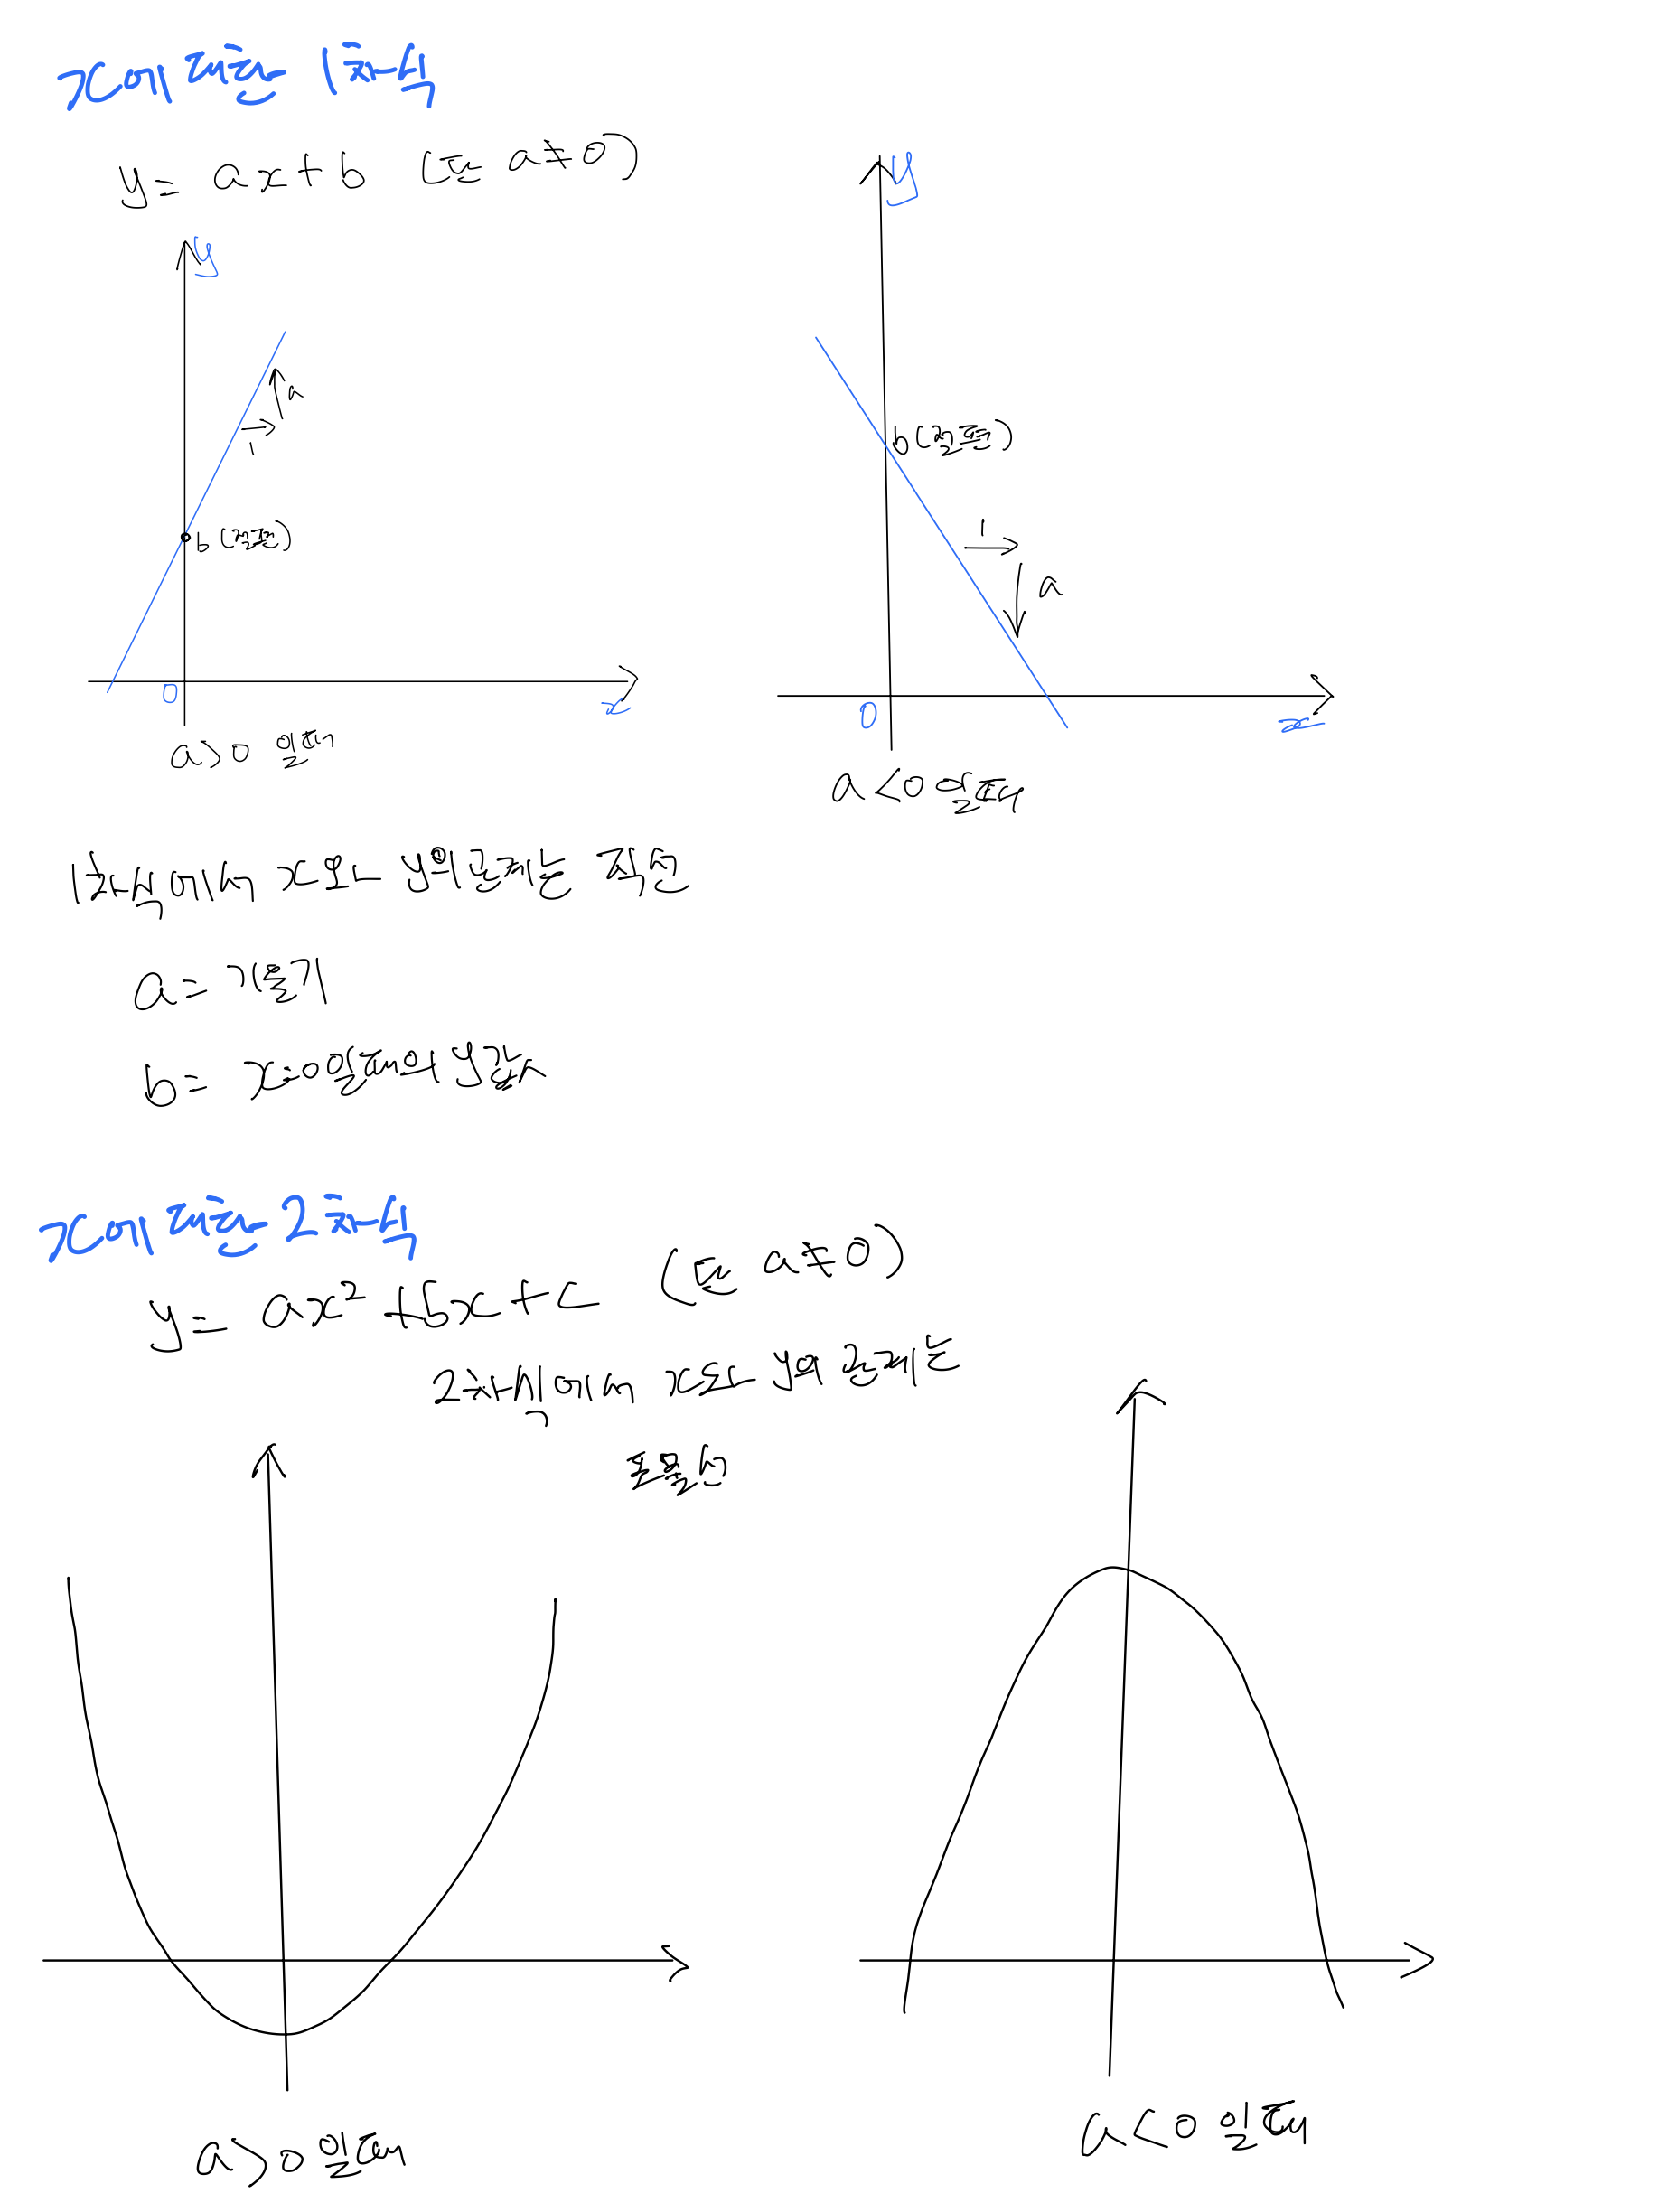 x에 대한 1차식
y = ax + b (단 a≠0)
y
a
1
b (절편)
0
x
a>0 일때
y
b (절편)
1
a
0
x
a<0 일때
1차식에서 x와 y의 관계는 직선
a = 기울기
b = x=0일때의 y값
x에 대한 2차식
y = ax² + bx + c (단 a≠0)
2차식에서 x와 y의 관계는
포물선
a>0일때
a<0 일때